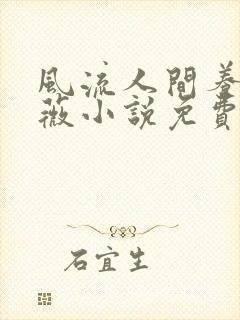 風流人間
薇小説免費
石宜生